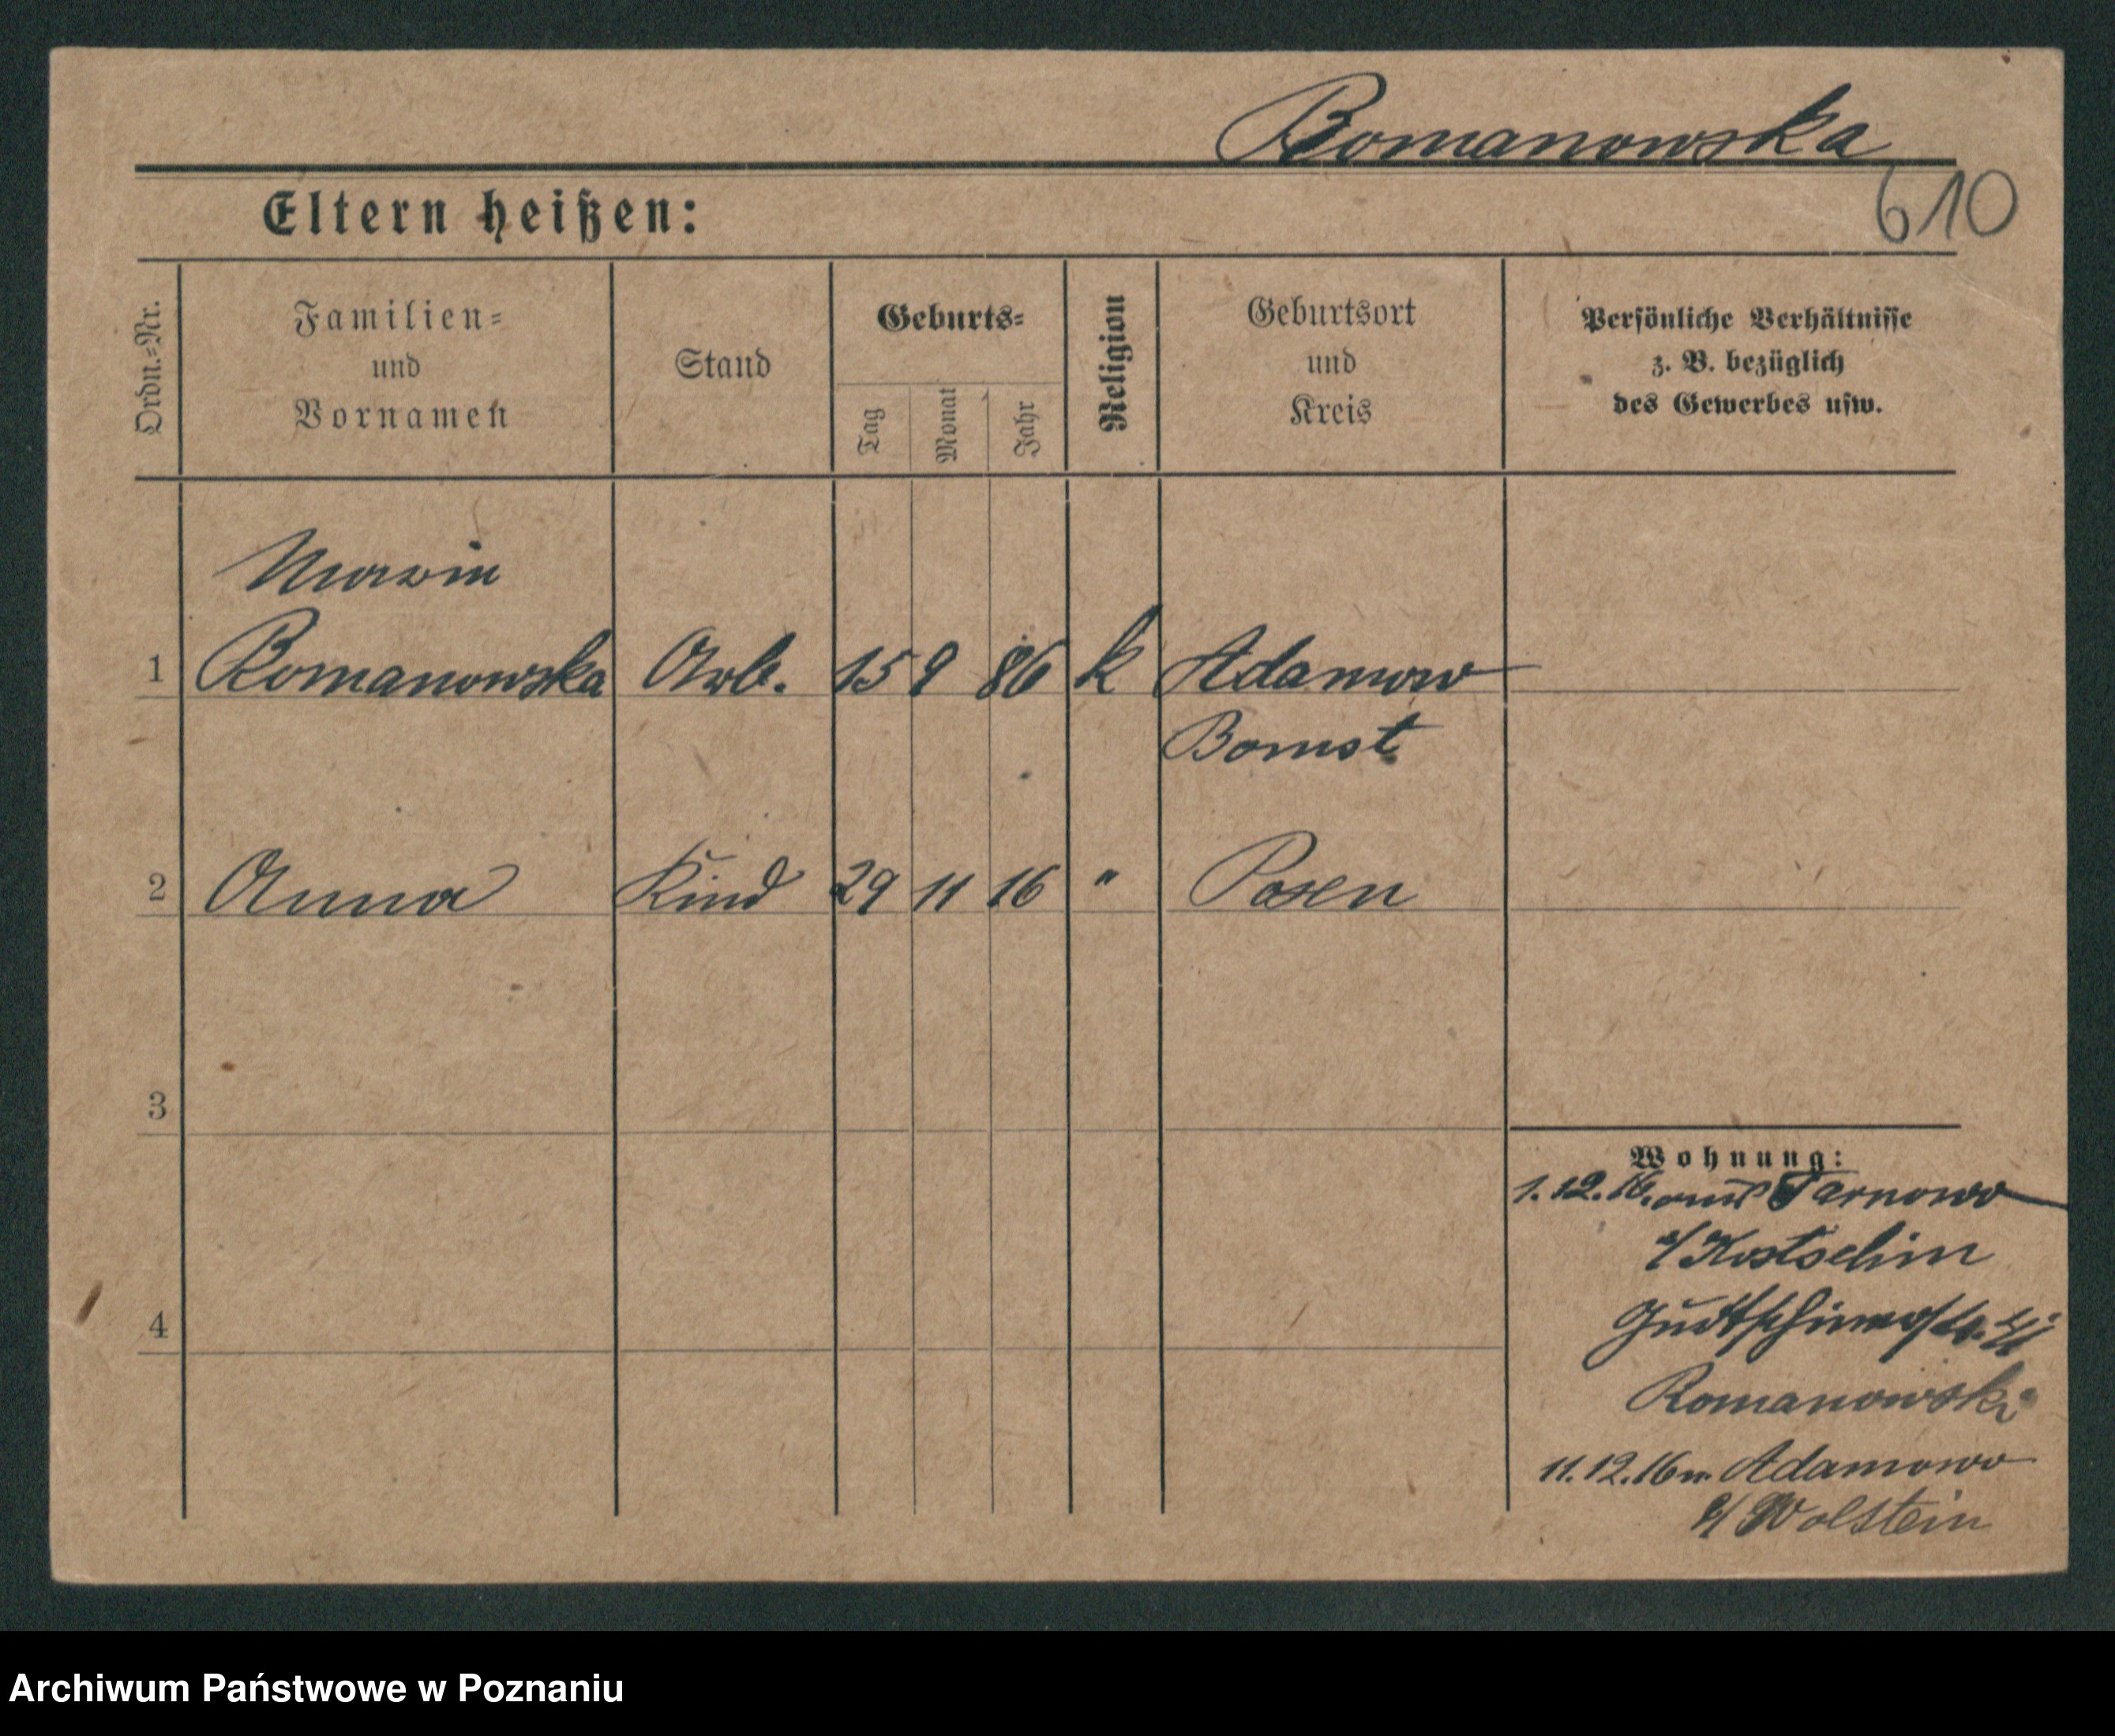 Romanowska
610
Eltern heißen:
Ordn.=Nr.
Familien=
und
Vornamen
Stand
Geburts=
Tag
Monat
Jahr
Religion
Geburtsort
und
Kreis
Persönliche Verhältnisse
z. B. bezüglich
des Gewerbes usw.
1
Romanowska
Arb.
15
9
86
k
Adamowo
Bomst
2
Anna
Kind
29
11
16
"
Posen
3
4
Wohnung:
1.12.16. aus Tarnowo
b/ Kostschin
Romanowski
11.12.16 n. Adamowo
b/ Wolstein
Archiwum Państwowe w Poznaniu